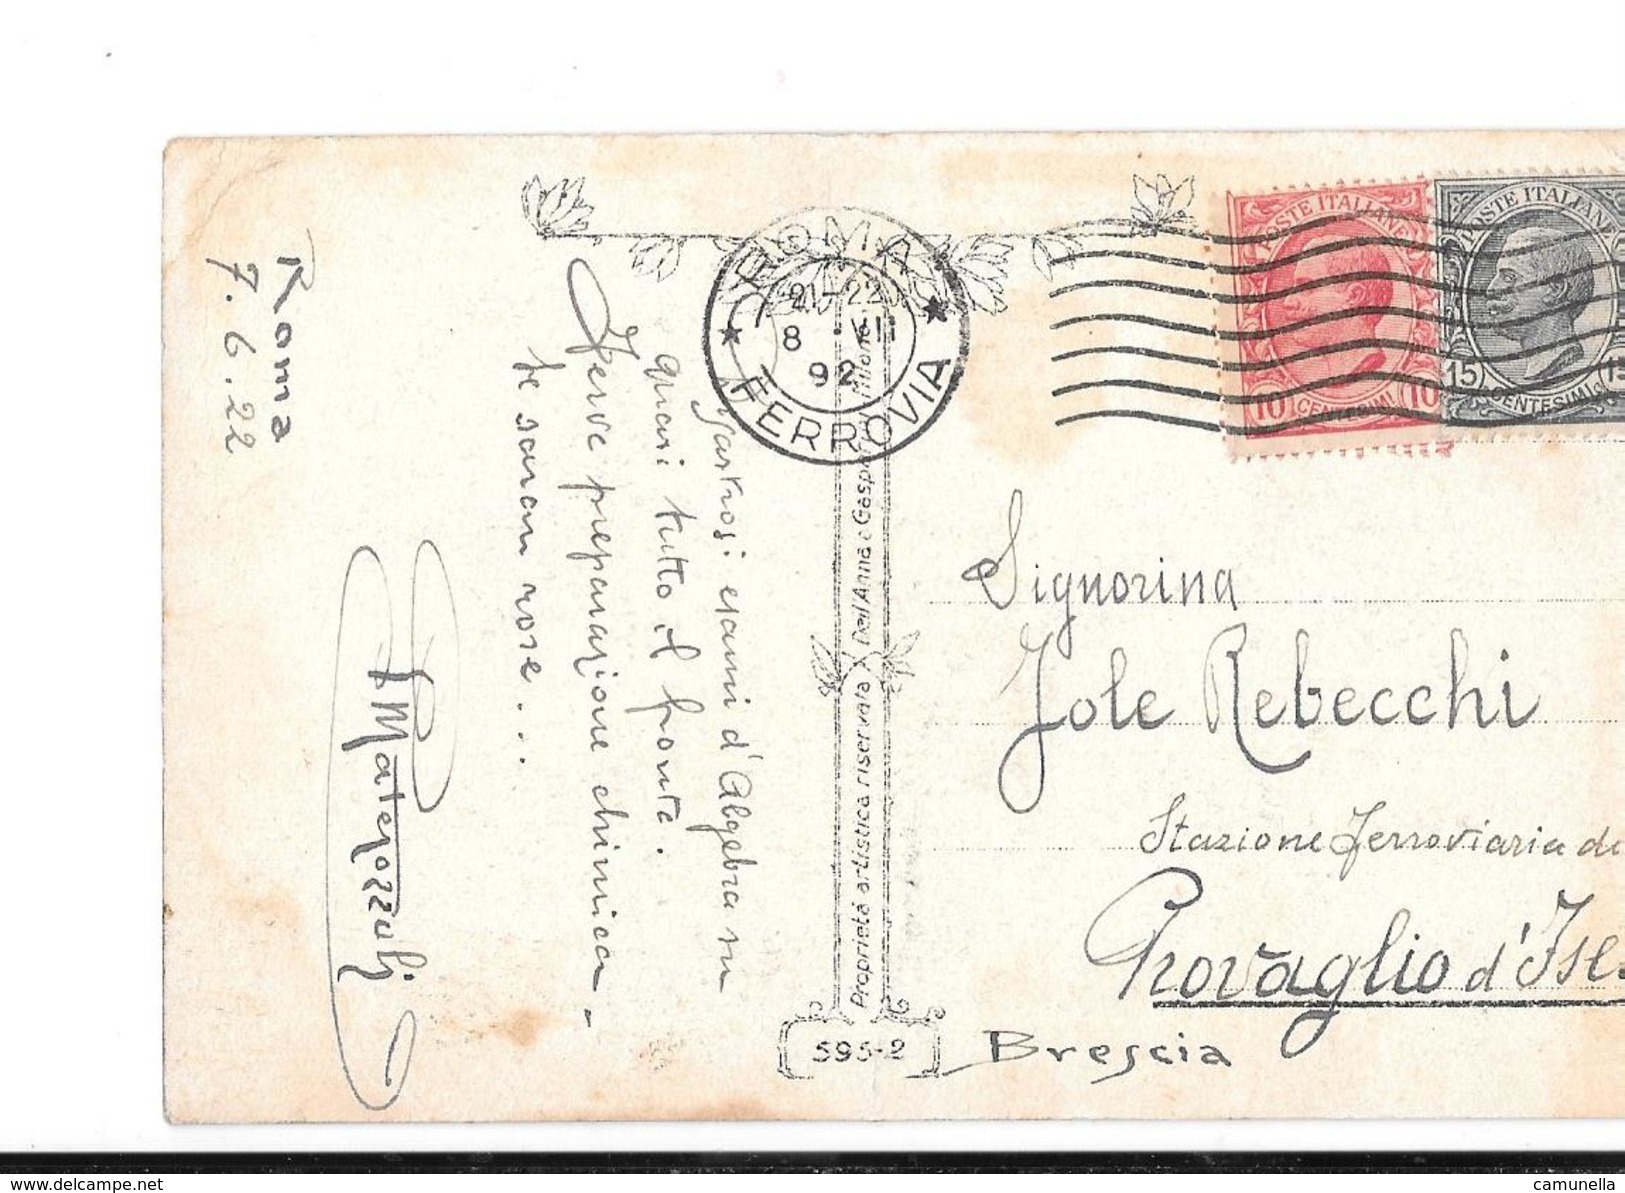 Roma
7.6.22
Disastrosi esami d'Algebra su
quasi tutto il fronte.
Ferve preparazione chimica -
Se saran rose...
Materozzoli
ROMA
21-22
8 VII
92
FERROVIA
POSTE ITALIANE
10 CENTESIMI 10
POSTE ITALIANE
15 CENTESIMI 15
Proprietà artistica riservara Dell'Anna e Gasparini Milano
595-2
Signorina
Jole Rebecchi
Stazione Ferroviaria di
Provaglio d'Ise
Brescia
delcampe.net
camunella